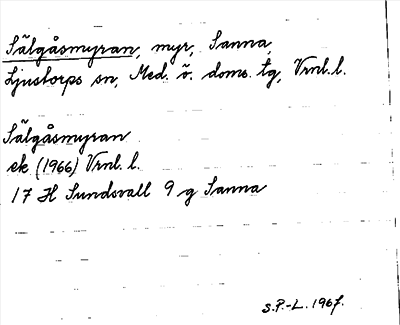 Sälgåsmyran, myr, Sanna,
Ljustorps sn, Med. ö. doms. tg, Vrnl. l.
Sälgåsmyran
ek (1966) Vrnl. l.
17 H Sundsvall 9 g Sanna
S.P.-L. 1967.